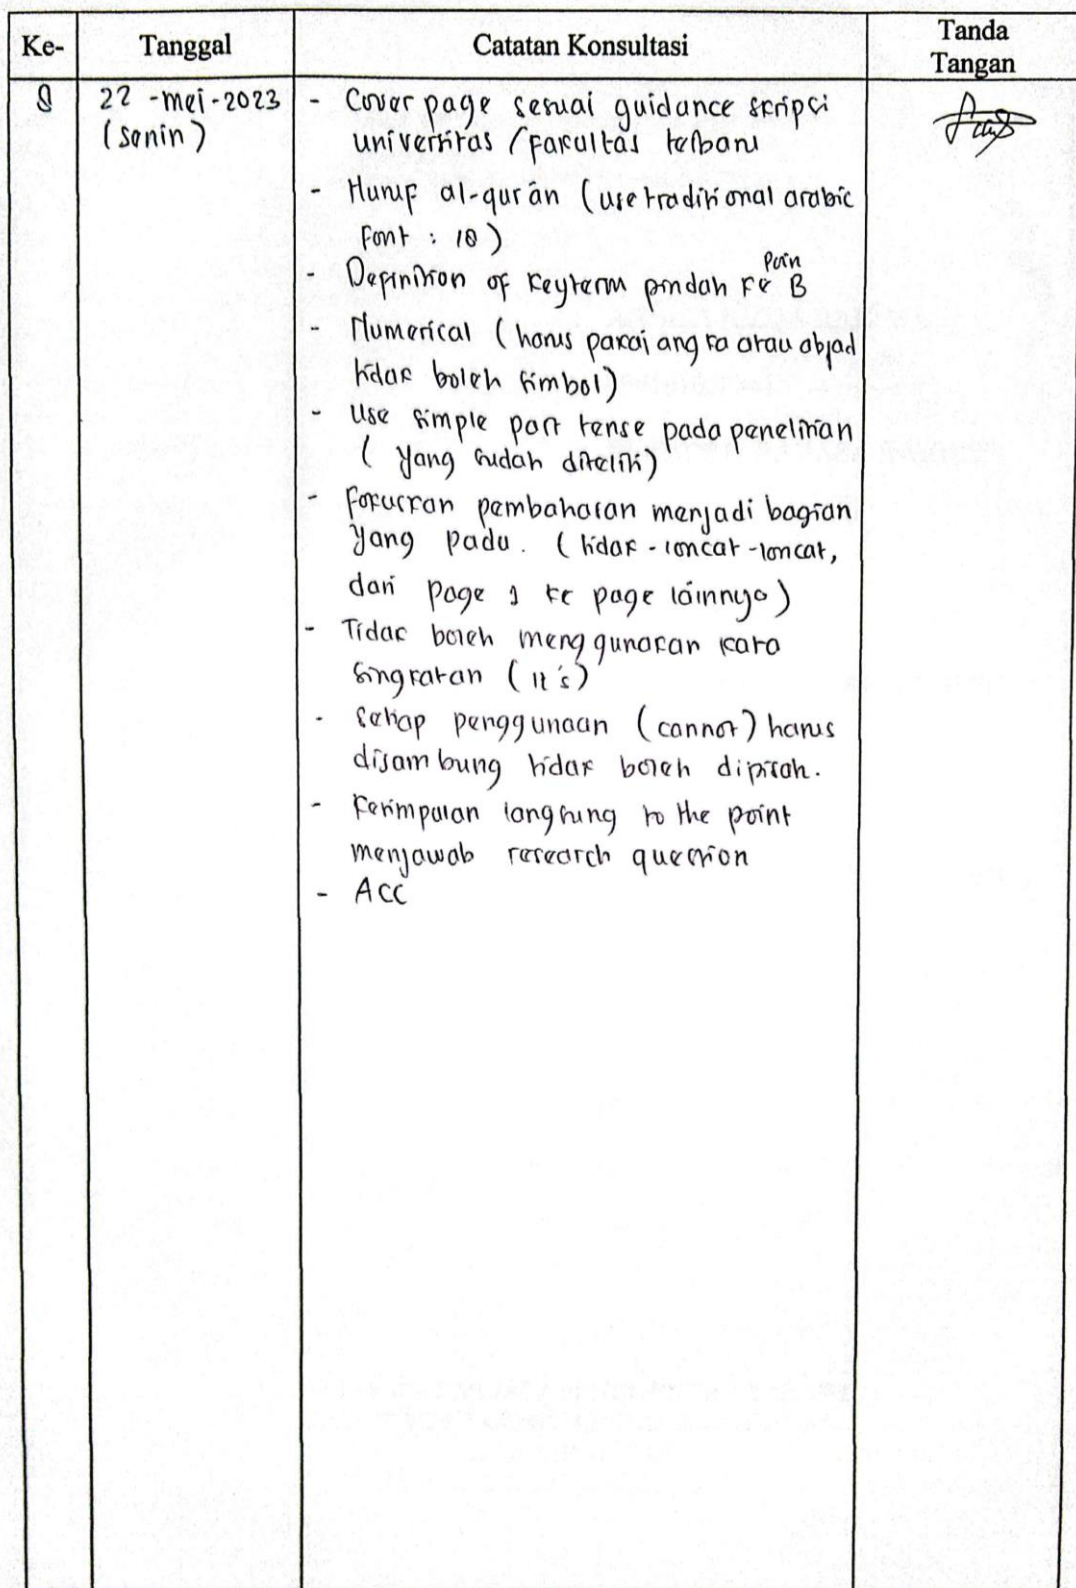 Ke- Tanggal Catatan Konsultasi Tanda Tangan
8 22 -mei-2023 - Cover page sesuai guidance skripsi
(senin) universitas / Fakultas terbaru
- Huruf al-qur'an (use traditional arabic
Font : 18)
- Definition of keyterm pindah ke Poin B
- Numerical (harus pakai angka atau abjad
tidak boleh simbol)
- Use simple past tense pada penelitian
( yang sudah diteliti)
- Fokuskan pembahasan menjadi bagian
yang padu. ( tidak - loncat - loncat,
dari page 1 ke page lainnya )
- Tidak boleh menggunakan kata
singkatan ( it's )
- Setiap penggunaan (cannot) harus
disambung tidak boleh dipisah.
- Kesimpulan langsung to the point
menjawab research question
- Acc